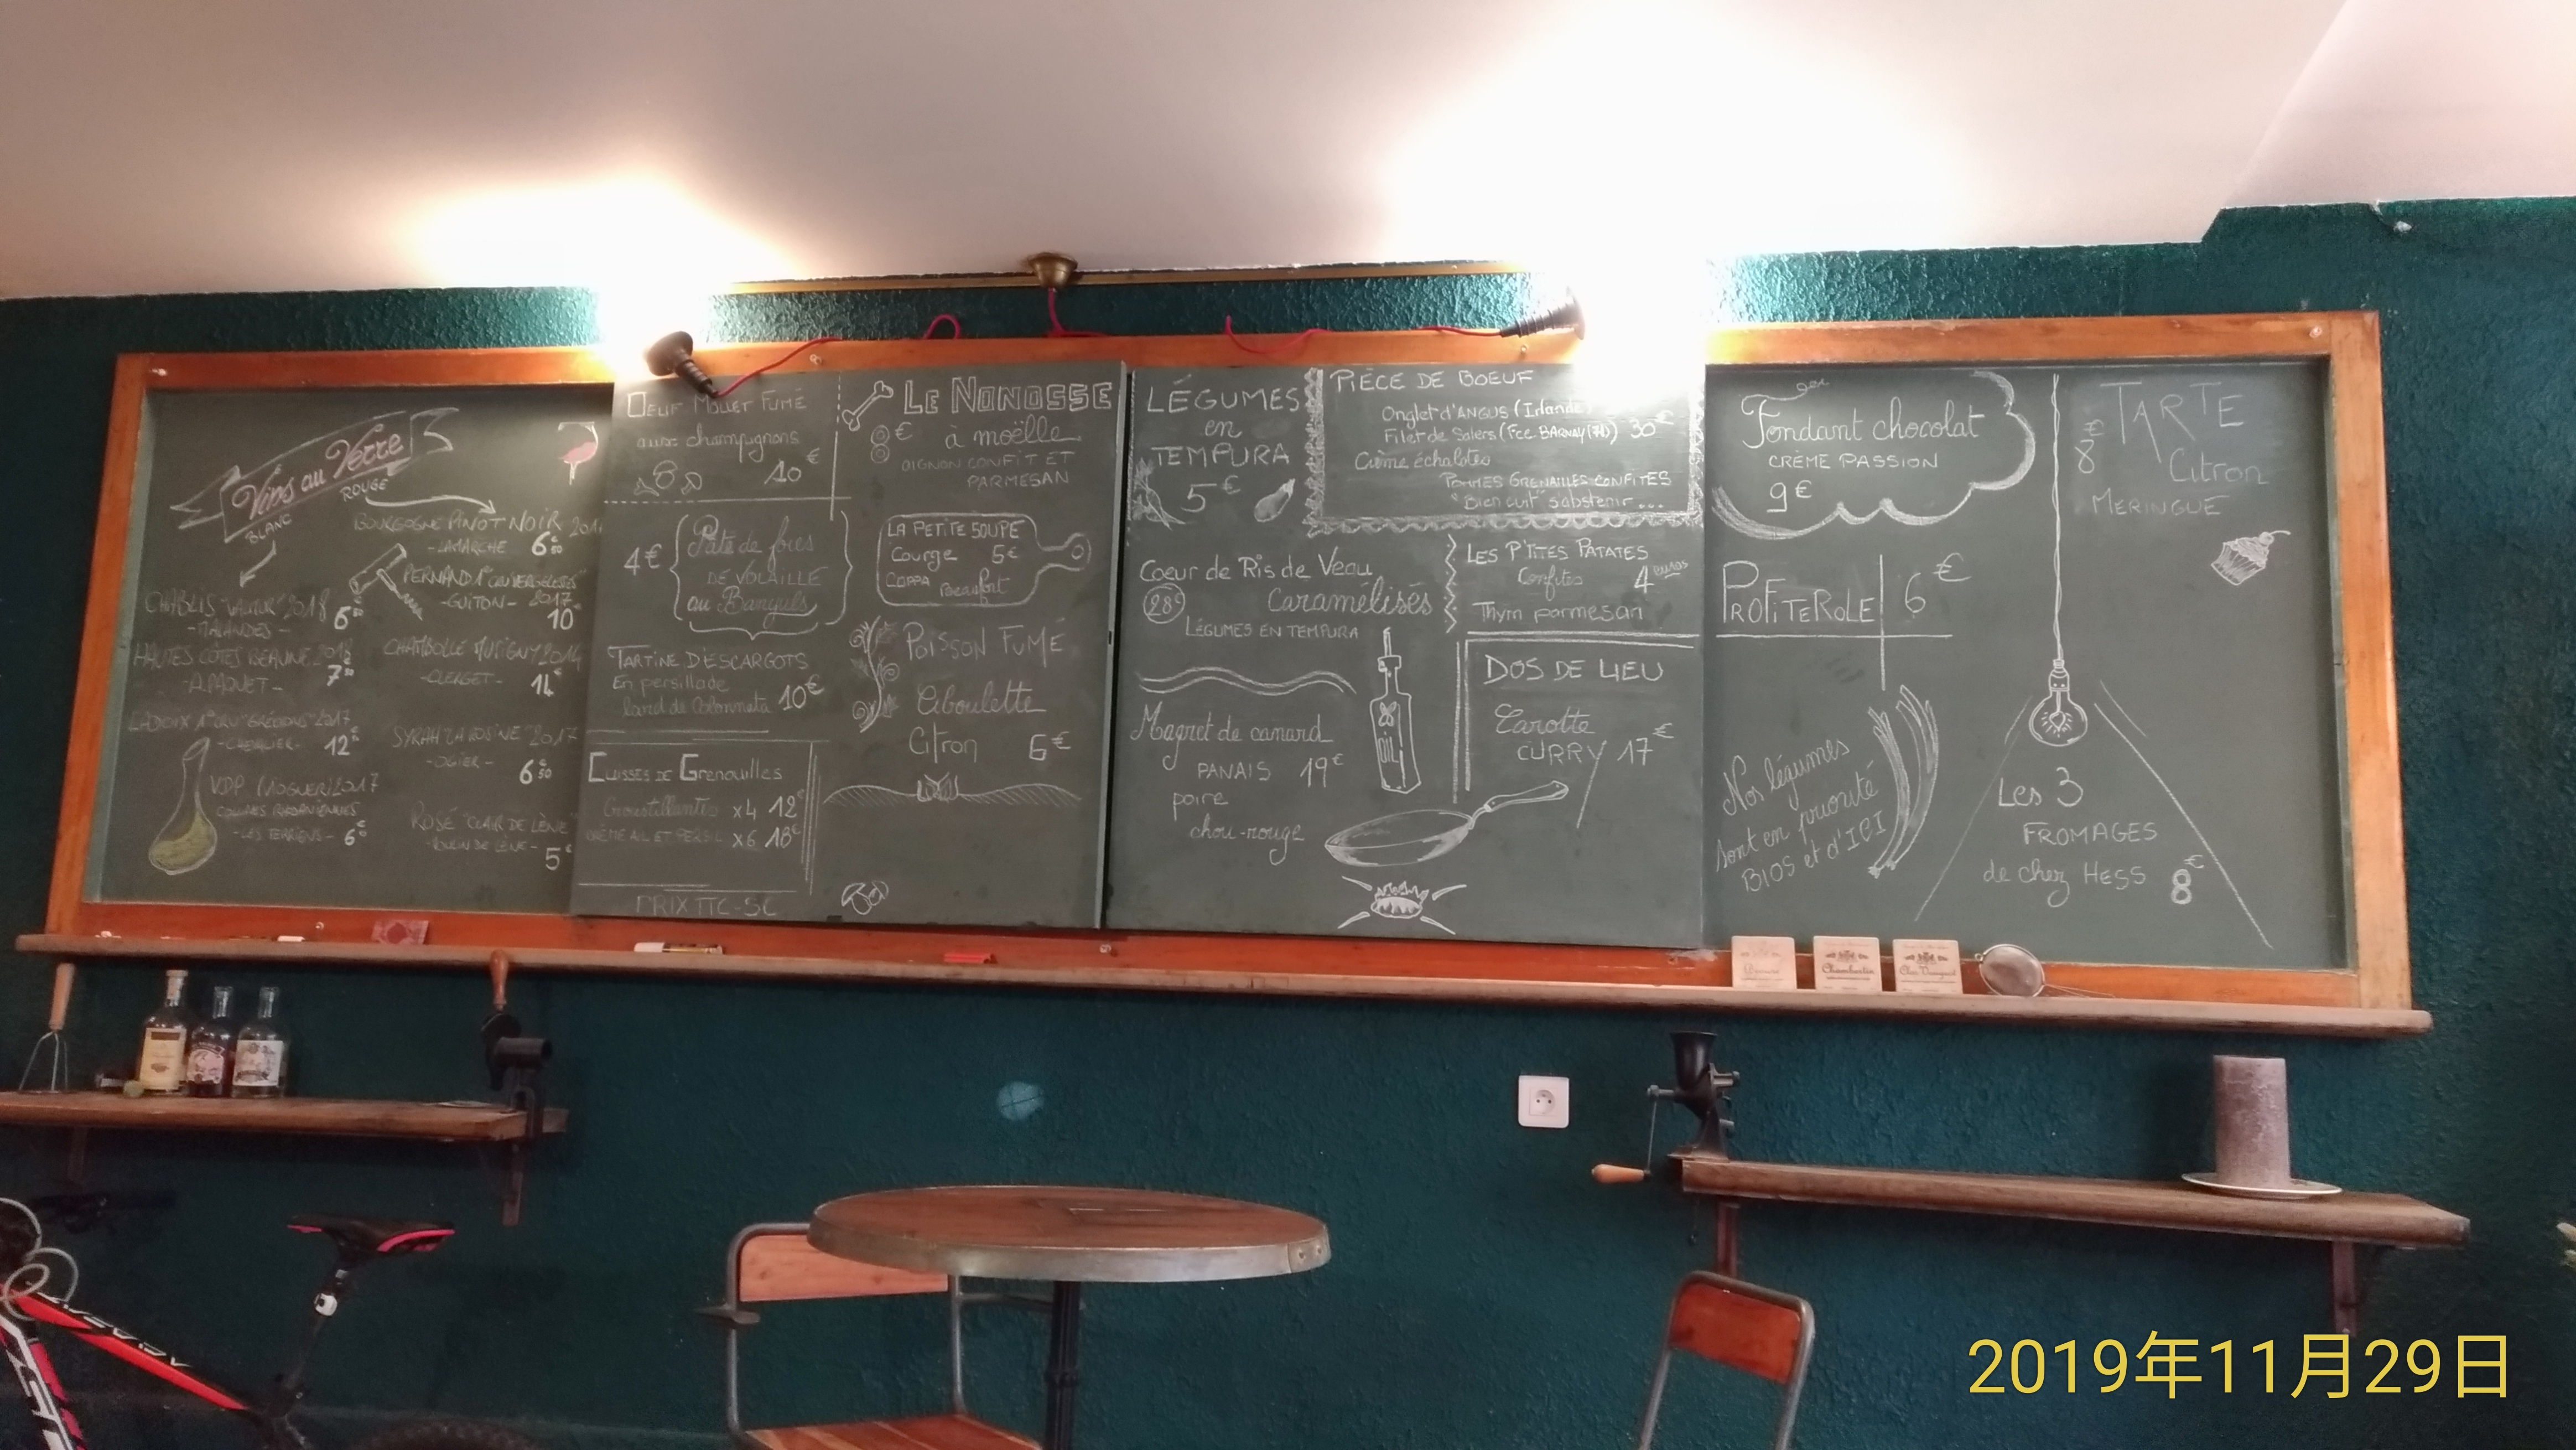 Vins au Verre
ROUGE
BLANC
BOURGOGNE PINOT NOIR 201
-LAMARCHE- 6€50
PERNAND 1er CRU VERGELESSES"
-GUITON- 2017
10
CHABLIS 2018 6€
-MALANDES-
HAUTES CÔTES BEAUNE 2018
-A.PAQUET- 7€50
CHAMBOLLE MUSIGNY 2014
-CLERGET- 14€
LADOIX 1er CRU "GRÉCHONS" 2017
-CHEVALIER- 12€
SYRAH LA ROSINE 2017
-OGIER- 6€50
VDP 2017
COLLINES RHODANIENNES
6€
ROSÉ "CLAIR DE LÈNE"
5€
OEUF MOLLET FUMÉ
aux champignons
10€
LE NONOSSE
8€ à moëlle
OIGNON CONFIT ET
PARMESAN
4€
Pâté de foies
DE VOLAILLE
au Banyuls
LA PETITE SOUPE
Courge 5€
COPPA Beaufort
TARTINE D'ESCARGOTS
En persillade
lard de Colonnata 10€
POISSON FUMÉ
Ciboulette
Citron 6€
CUISSES DE GRENOUILLES
Croustillantes x4 12€
CRÈME AIL ET PERSIL x6 18€
PRIX TTC-SC
LÉGUMES
en
TEMPURA
5€
PIÈCE DE BOEUF
Onglet d'ANGUS (Irlande)
Filet de Salers (Fce. BARNAY(71)) 30€
Crème échalotes
POMMES GRENAILLES CONFITES
"Bien cuit" s'abstenir...
Coeur de Ris de Veau
28€ Caramélisés
LÉGUMES EN TEMPURA
LES P'TITES PATATES
Confites 4 euros
Thym parmesan
OIL
Magret de canard
PANAIS 19€
poire
chou-rouge
DOS DE LIEU
Carotte
CURRY 17€
Fondant chocolat
CRÈME PASSION
9€
PROFITEROLE 6€
Nos légumes
sont en priorité
BIOS et d'ICI
TARTE
8€
Citron
MERINGUE
Les 3
FROMAGES
de chez HESS 8€
Chambertin
Clos Vougeot
2019年11月29日